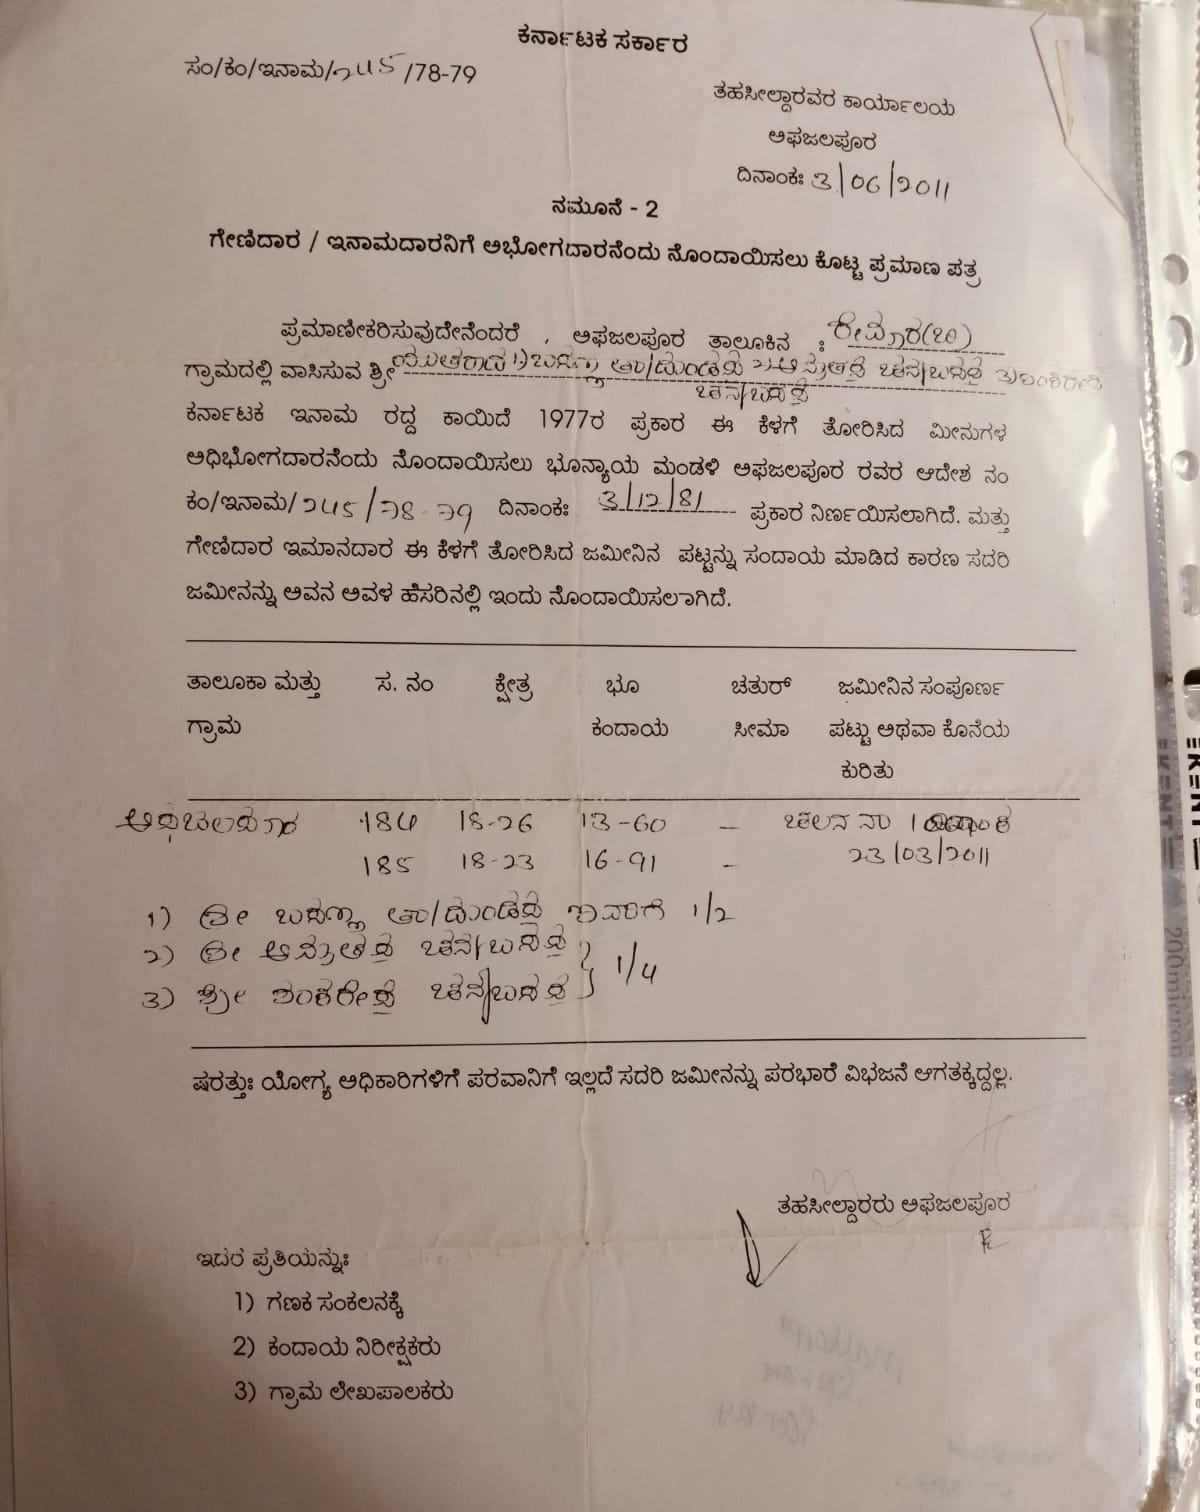 ಕರ್ನಾಟಕ ಸರ್ಕಾರ
ಸಂ/ಕಂ/ಇನಾಮ/245/78-79
ತಹಸೀಲ್ದಾರವರ ಕಾರ್ಯಾಲಯ
ಅಫಜಲಪೂರ
ದಿನಾಂಕಃ 3/06/2011
ನಮೂನೆ - 2
ಗೇಣಿದಾರ / ಇನಾಮದಾರನಿಗೆ ಅಭೋಗದಾರನೆಂದು ನೊಂದಾಯಿಸಲು ಕೊಟ್ಟ ಪ್ರಮಾಣ ಪತ್ರ
ಪ್ರಮಾಣೀಕರಿಸುವುದೇನೆಂದರೆ , ಅಫಜಲಪೂರ ತಾಲೂಕಿನ :
ಗ್ರಾಮದಲ್ಲಿ ವಾಸಿಸುವ ಶ್ರೀ
ಕರ್ನಾಟಕ ಇನಾಮ ರದ್ದ ಕಾಯಿದೆ 1977ರ ಪ್ರಕಾರ ಈ ಕೆಳಗೆ ತೋರಿಸಿದ ಮೀನುಗಳ
ಅಧಿಭೋಗದಾರನೆಂದು ನೊಂದಾಯಿಸಲು ಭೂನ್ಯಾಯ ಮಂಡಳಿ ಅಫಜಲಪೂರ ರವರ ಆದೇಶ ನಂ
ಕಂ/ಇನಾಮ/245/78-79 ದಿನಾಂಕಃ 3/12/81 ಪ್ರಕಾರ ನಿರ್ಣಯಿಸಲಾಗಿದೆ. ಮತ್ತು
ಗೇಣಿದಾರ ಇಮಾನದಾರ ಈ ಕೆಳಗೆ ತೋರಿಸಿದ ಜಮೀನಿನ ಪಟ್ಟನ್ನು ಸಂದಾಯ ಮಾಡಿದ ಕಾರಣ ಸದರಿ
ಜಮೀನನ್ನು ಅವನ ಅವಳ ಹೆಸರಿನಲ್ಲಿ ಇಂದು ನೊಂದಾಯಿಸಲಾಗಿದೆ.
ತಾಲೂಕಾ ಮತ್ತು ಸ. ನಂ ಕ್ಷೇತ್ರ ಭೂ ಚತುರ್ ಜಮೀನಿನ ಸಂಪೂರ್ಣ
ಗ್ರಾಮ ಕಂದಾಯ ಸೀಮಾ ಪಟ್ಟು ಅಥವಾ ಕೊನೆಯ
ಕುರಿತು
184 18-26 13-60 – ಚಲನ ನಂ
185 18-23 16-91 – 23/03/2011
1) ಶ್ರೀ 1/2
2) ಶ್ರೀ
3) ಶ್ರೀ 1/4
ಷರತ್ತುಃ ಯೋಗ್ಯ ಅಧಿಕಾರಿಗಳಿಗೆ ಪರವಾನಿಗೆ ಇಲ್ಲದೆ ಸದರಿ ಜಮೀನನ್ನು ಪರಭಾರೆ ವಿಭಜನೆ ಆಗತಕ್ಕದ್ದಲ್ಲ.
ತಹಸೀಲ್ದಾರರು ಅಫಜಲಪೂರ
ಇದರ ಪ್ರತಿಯನ್ನುಃ
1) ಗಣಕ ಸಂಕಲನಕ್ಕೆ
2) ಕಂದಾಯ ನಿರೀಕ್ಷಕರು
3) ಗ್ರಾಮ ಲೇಖಪಾಲಕರು
KENT
200micron